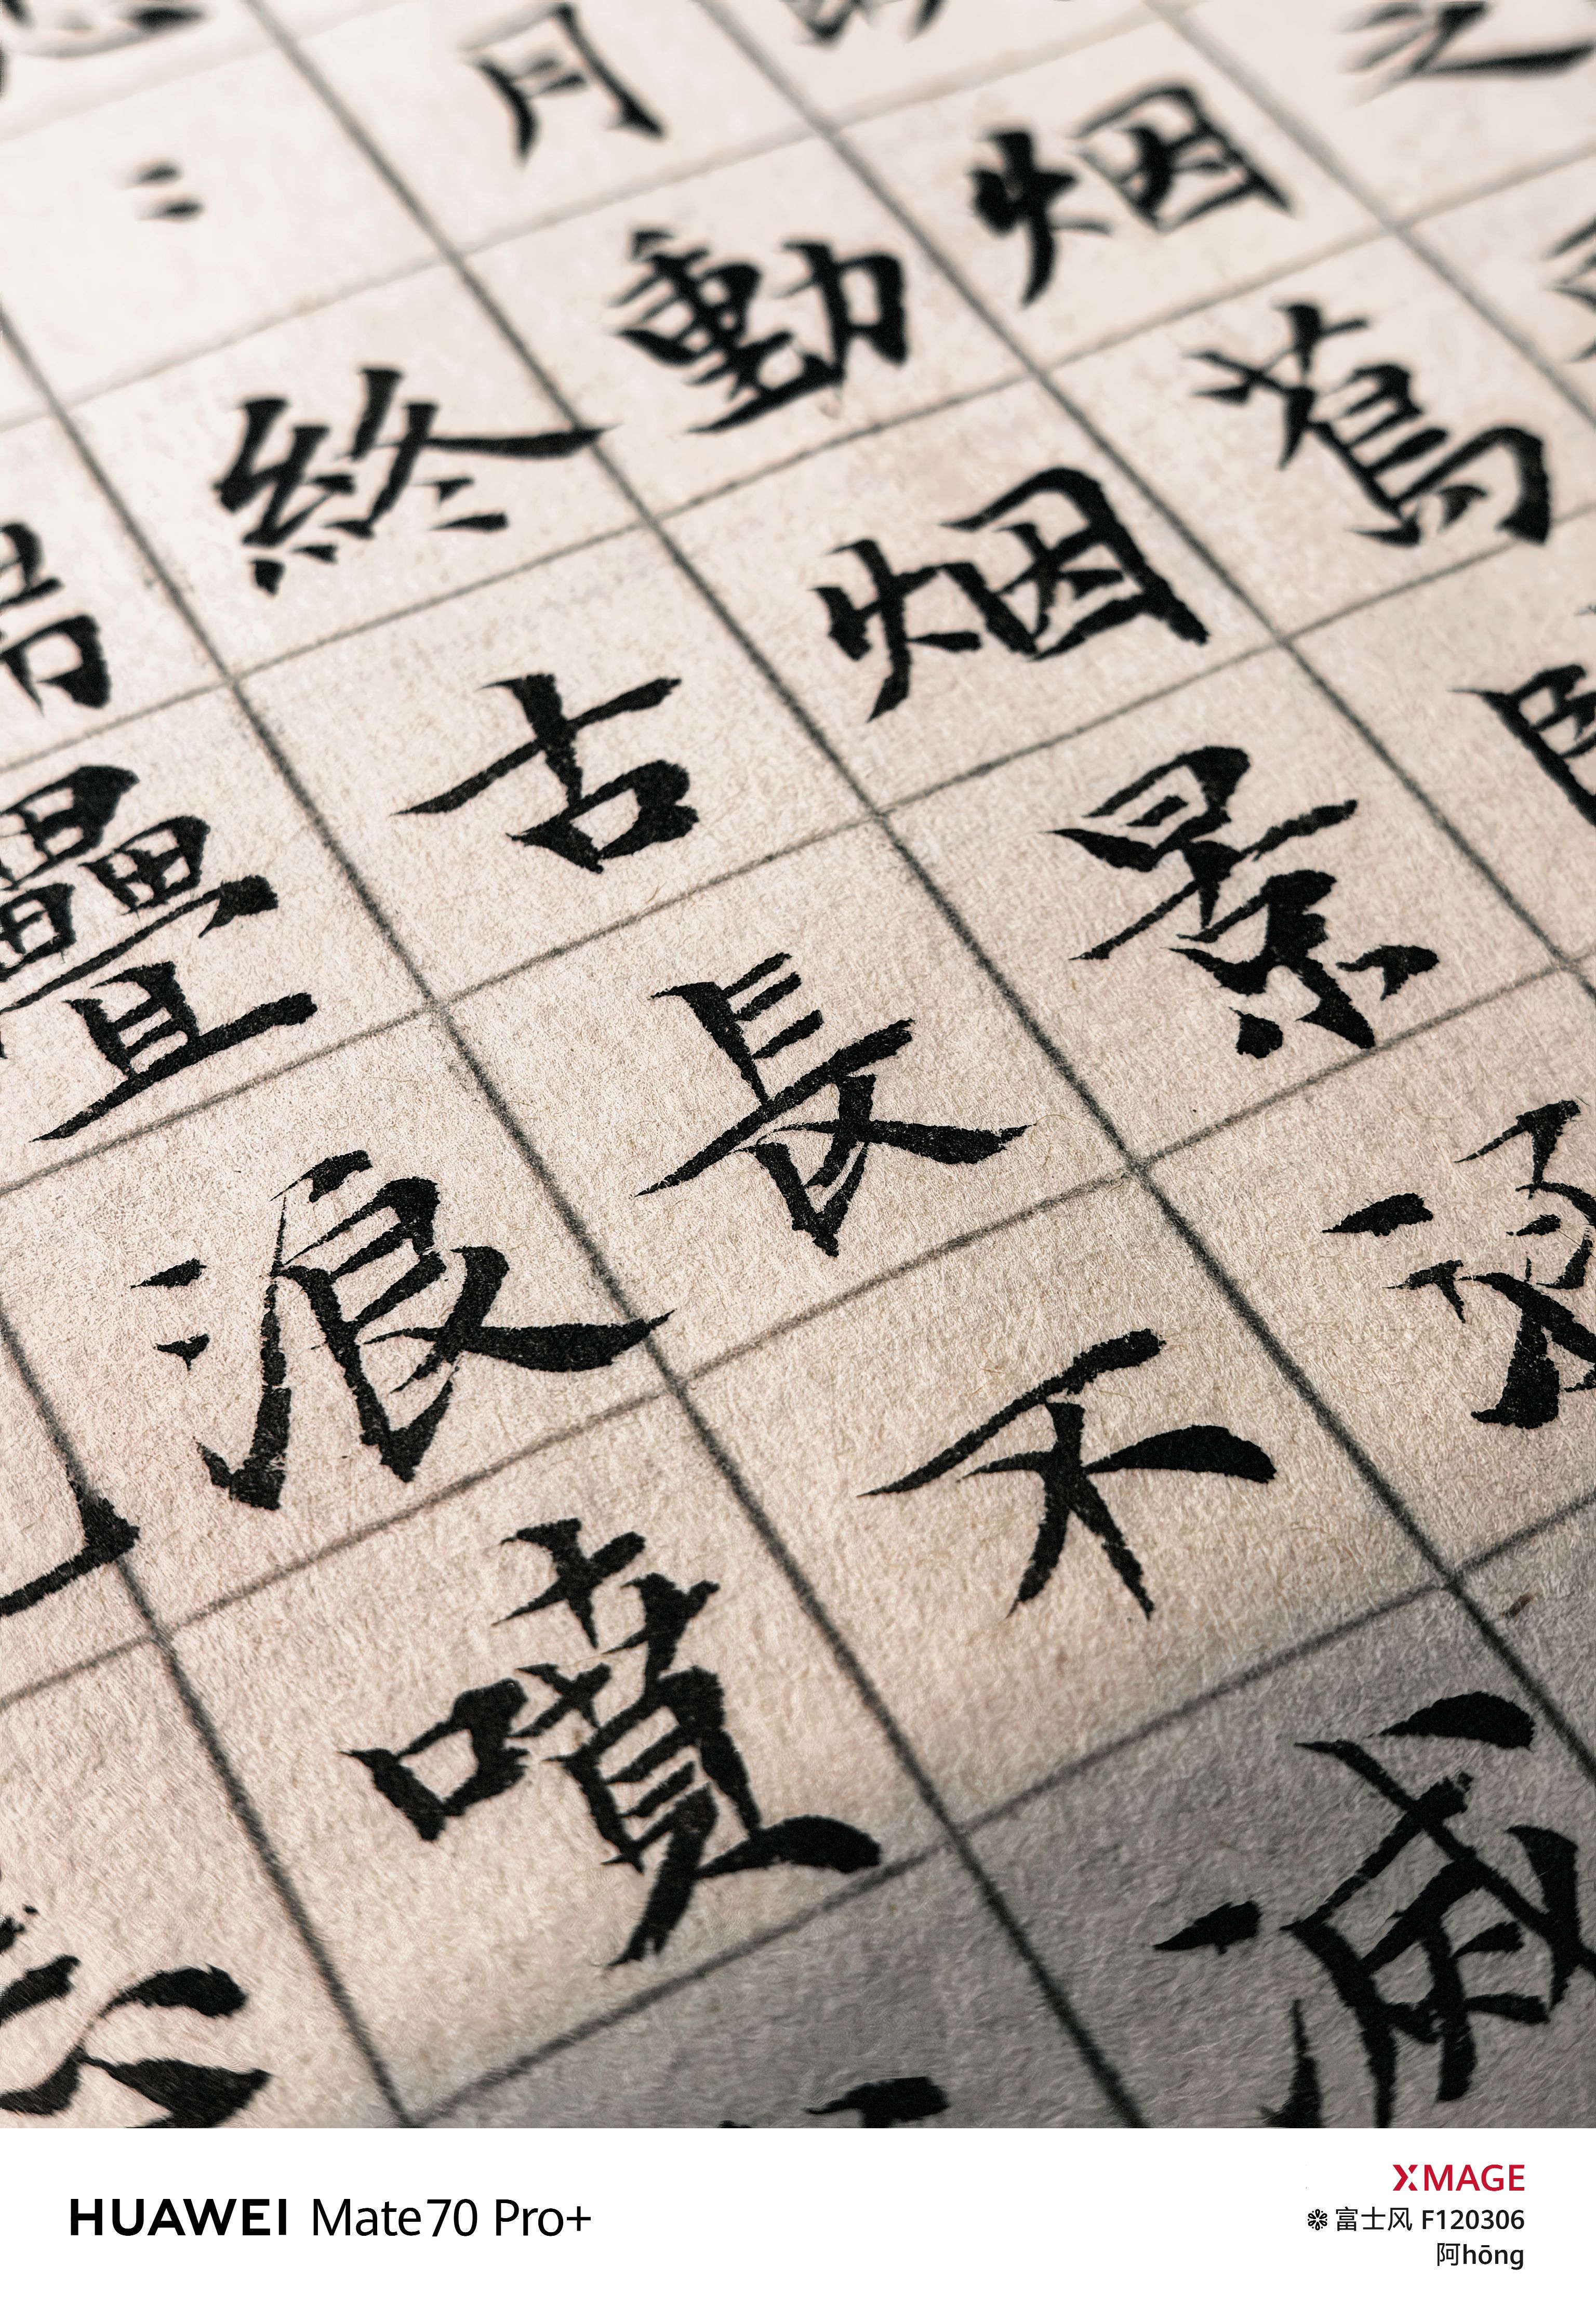 烟
月動烟景
終古長不滅
疊浪噴
HUAWEI Mate70 Pro+
XMAGE
富士风 F120306
阿hōng